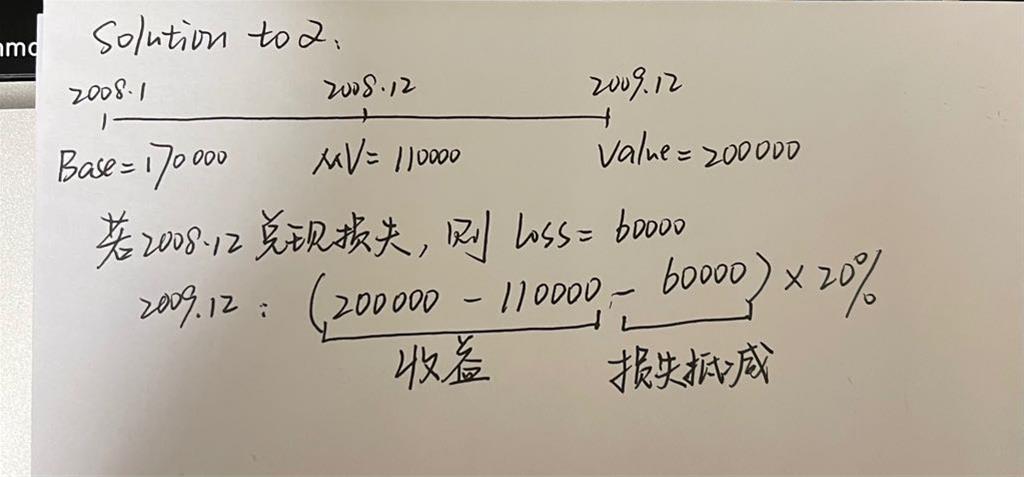 nmo
Solution to 2.
2008.1 2008.12 2009.12
Base = 170000 MV = 110000 Value = 200000
若2008.12兑现损失，则 Loss = 60000
2009.12 : (200000 - 110000 - 60000) × 20%
收益 损失抵减